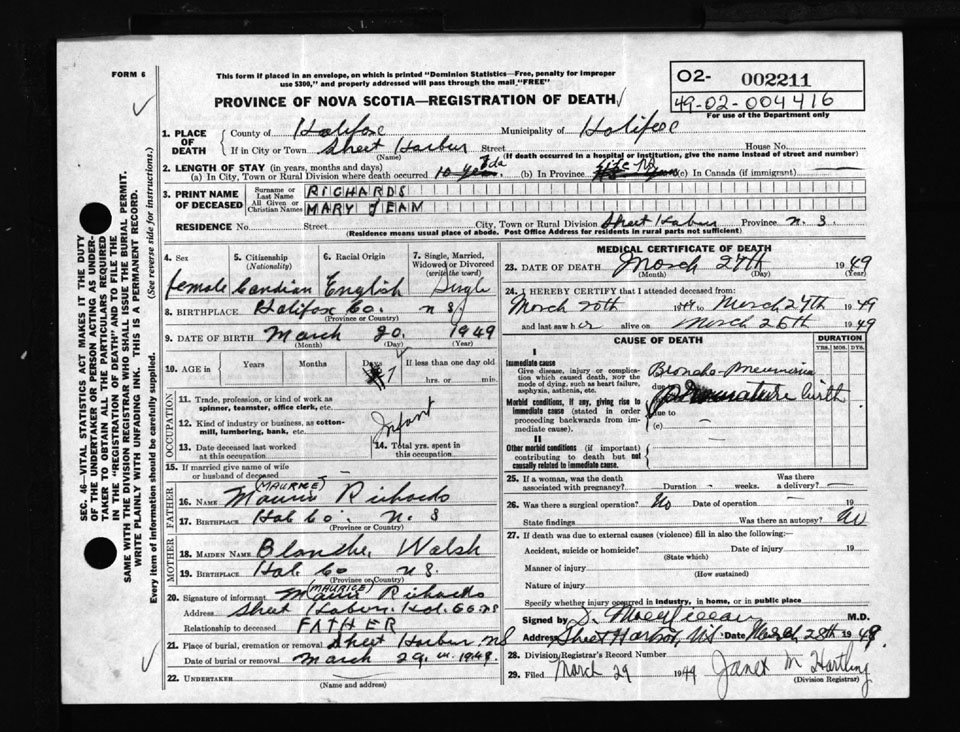 FORM 6
This form if placed in an envelope, on which is printed "Dominion Statistics—Free, penalty for improper
use $300," and properly addressed will pass through the mail "FREE"
PROVINCE OF NOVA SCOTIA—REGISTRATION OF DEATH
O2- 002211
49-02-004416
For use of the Department only
SEC. 46—VITAL STATISTICS ACT MAKES IT THE DUTY
OF THE UNDERTAKER OR PERSON ACTING AS UNDER-
TAKER TO OBTAIN ALL THE PARTICULARS REQUIRED
IN THE "REGISTRATION OF DEATH" AND TO FILE THE
SAME WITH THE DIVISION REGISTRAR WHO SHALL ISSUE THE BURIAL PERMIT.
WRITE PLAINLY WITH UNFADING INK. THIS IS A PERMANENT RECORD.
Every item of information should be carefully supplied. (See reverse side for instructions.)
1. PLACE OF DEATH
County of Halifax Municipality of Halifax
If in City or Town Sheet Harbur Street House No.
(Name) (If death occurred in a hospital or institution, give the name instead of street and number)
2. LENGTH OF STAY (in years, months and days)
(a) In City, Town or Rural Division where death occurred 7 da (b) In Province Life NS (c) In Canada (if immigrant)
3. PRINT NAME OF DECEASED
Surname or Last Name RICHARDS
All Given or Christian Names MARY JEAM
RESIDENCE No. Street City, Town or Rural Division Sheet Harbur Province N. S
(Residence means usual place of abode. Post Office Address for residents in rural parts not sufficient)
4. Sex 5. Citizenship (Nationality) 6. Racial Origin 7. Single, Married, Widowed or Divorced (write the word)
female Candian English Single
8. BIRTHPLACE Halifax Co. N S
(Province or Country)
9. DATE OF BIRTH March 20. 1949
(Month) (Day) (Year)
10. AGE in Years Months Days 7 If less than one day old
hrs. or min.
OCCUPATION
11. Trade, profession, or kind of work as
spinner, teamster, office clerk, etc.
12. Kind of industry or business, as cotton-
mill, lumbering, bank, etc. Infant
13. Date deceased last worked
at this occupation
14. Total yrs. spent in
this occupation
15. If married give name of wife
or husband of deceased —
FATHER
(MAURICE)
16. Name Richards
17. Birthplace Hal Co N S
(Province or Country)
MOTHER
18. Maiden Name Blanche Walsh
19. Birthplace Hal. Co N S.
(Province or Country)
(MAURICE)
20. Signature of informant Richards
Address Sheet Harbur. Hal. Co NS
Relationship to deceased FATHER
21. Place of burial, cremation or removal Sheet Harbur NS
Date of burial or removal March 29. 1949.
22. UNDERTAKER
(Name and address)
MEDICAL CERTIFICATE OF DEATH
23. DATE OF DEATH March 27th 1949
(Month) (Day) (Year)
24. I HEREBY CERTIFY that I attended deceased from:
March 20th 1949 to March 27th 1949
and last saw her alive on March 26th 1949
CAUSE OF DEATH
DURATION
YRS. MOS. DYS.
I
Immediate cause
Give disease, injury or complica-
tion which caused death, NOT the
mode of dying, such as heart failure,
asphyxia, asthenia, etc.
Broncho-pneumonia
due
Morbid conditions, if any, giving rise to
immediate cause (stated in order
proceeding backwards from im-
mediate cause).
premature birth
due to
(c) —
II
Other morbid conditions (if important)
contributing to death but not
causally related to immediate cause. —
25. If a woman, was the death associated with pregnancy? Duration — weeks. Was there a delivery? —
26. Was there a surgical operation? No Date of operation — 19
State findings Was there an autopsy? No
27. If death was due to external causes (violence) fill in also the following:—
Accident, suicide or homicide? Date of injury 19
(State which)
Manner of injury
(How sustained)
Nature of injury
Specify whether injury occurred in industry, in home, or in public place
Signed by M.D.
Address Sheet Harbor, N.S. Date March 28th 1949
28. Division Registrar's Record Number
29. Filed March 29 1949 Janet M Hartling
(Division Registrar)